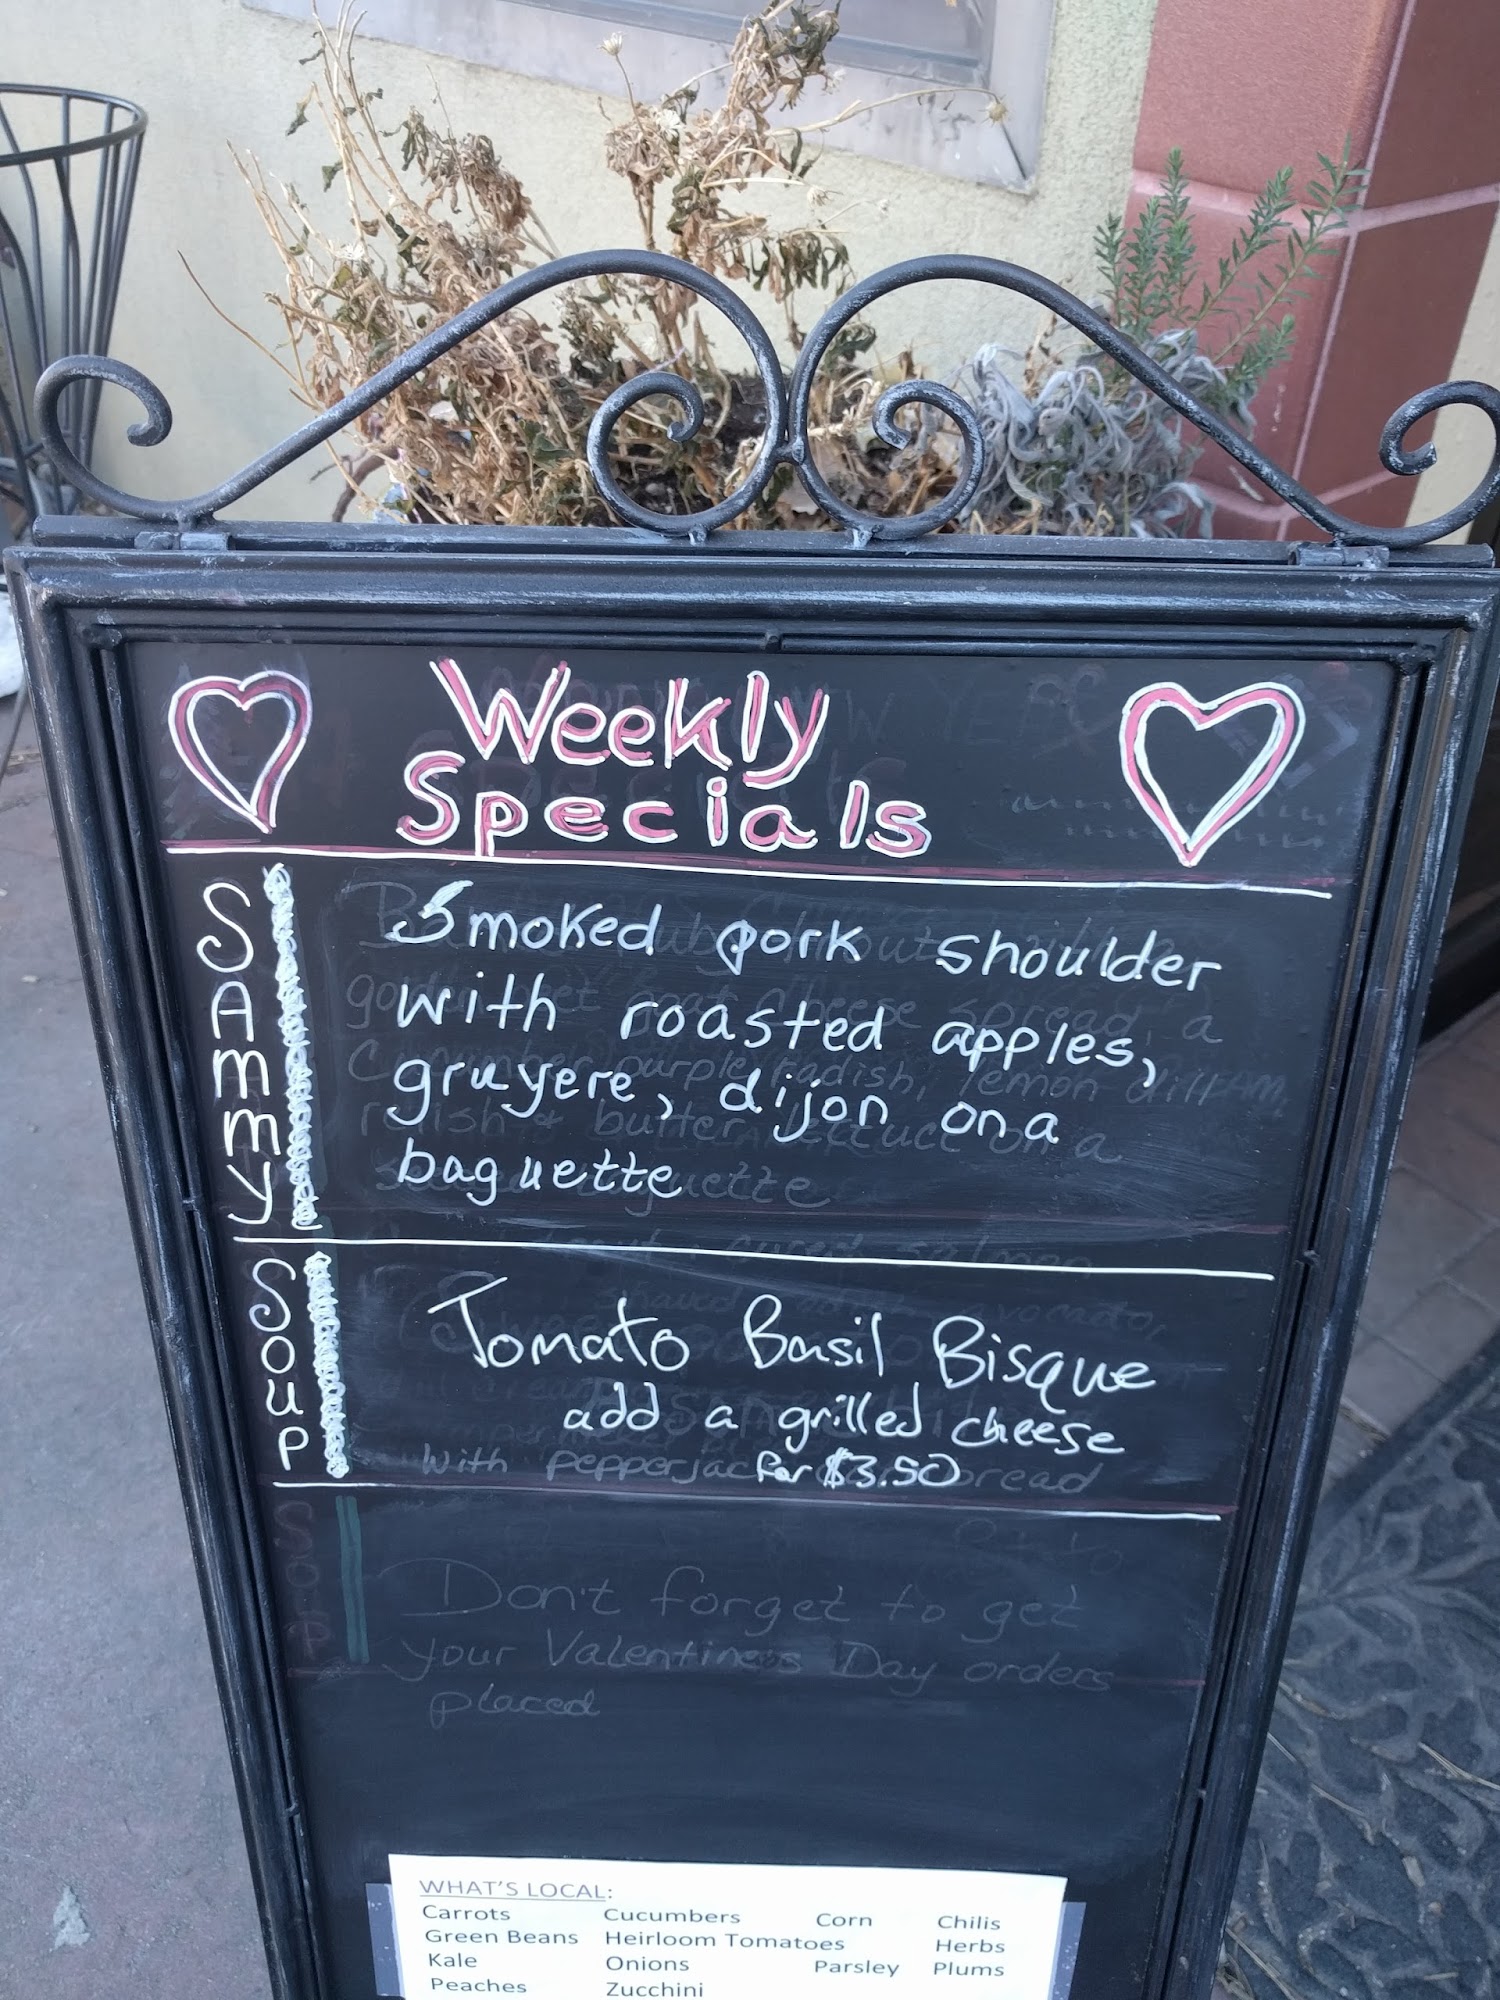 Weekly
Specials
SAMMY
Smoked pork shoulder
with roasted apples,
gruyere, dijon on a
baguette
SOUP
Tomato Basil Bisque
add a grilled cheese
for $3.50
with pepperjac bread
Don't forget to get
your Valentines Day orders
placed
WHAT'S LOCAL:
Carrots Cucumbers Corn Chilis
Green Beans Heirloom Tomatoes Herbs
Kale Onions Parsley Plums
Peaches Zucchini